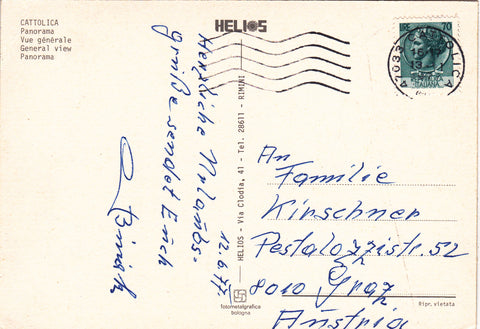 CATTOLICA
Panorama
Vue générale
General view
Panorama
HELIOS
70
47033 CATTOLICA
ITALIANA
Herzliche Urlaubs-
grüße sendet Euch
12.6.77
HELIOS - Via Clodia, 41 - Tel. 28611 - RIMINI
fotometalgrafica
bologna
An
Familie
Kirschner
Pestalozzistr. 52
8010 Graz
Austria
Ripr. vietata